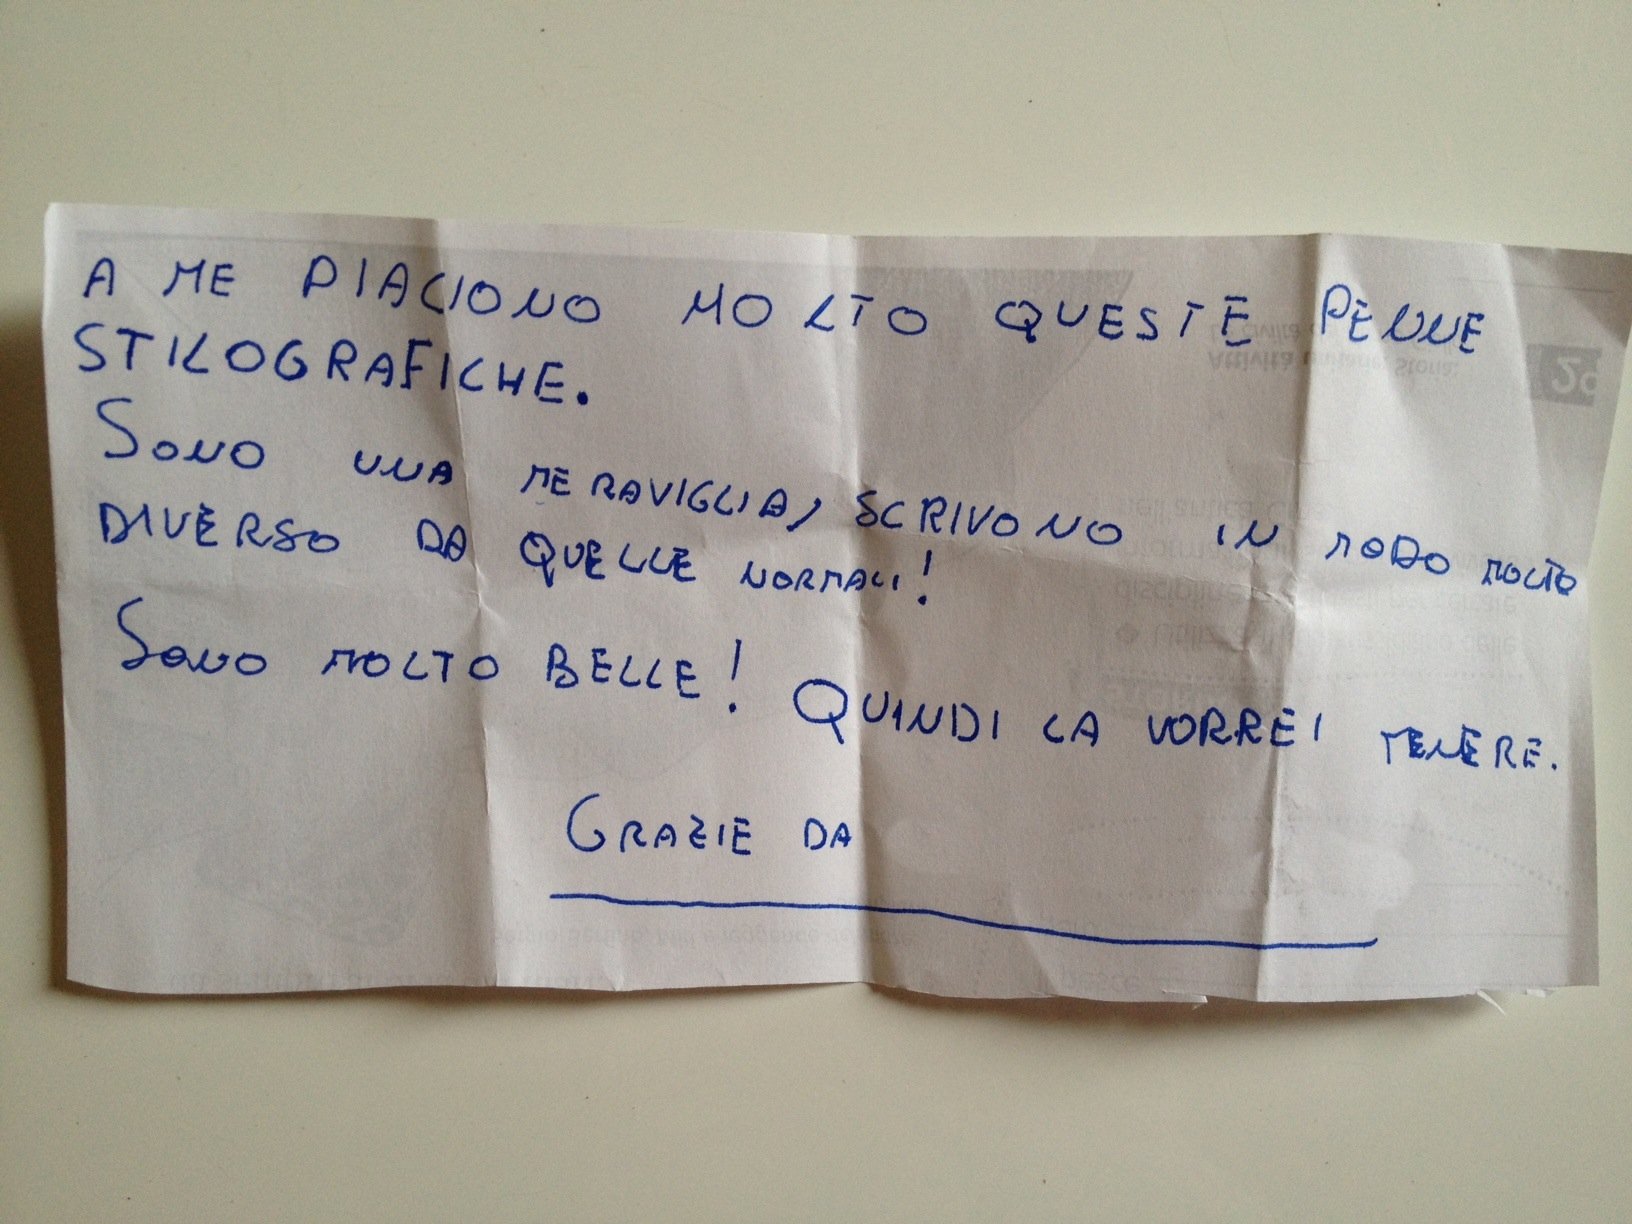 A ME PIACIONO MOLTO QUESTE PENNE
STILOGRAFICHE.
SONO UNA MERAVIGLIA, SCRIVONO IN MODO MOLTO
DIVERSO DA QUELLE NORMALI!
SONO MOLTO BELLE! QUINDI LA VORREI TENERE.
GRAZIE DA